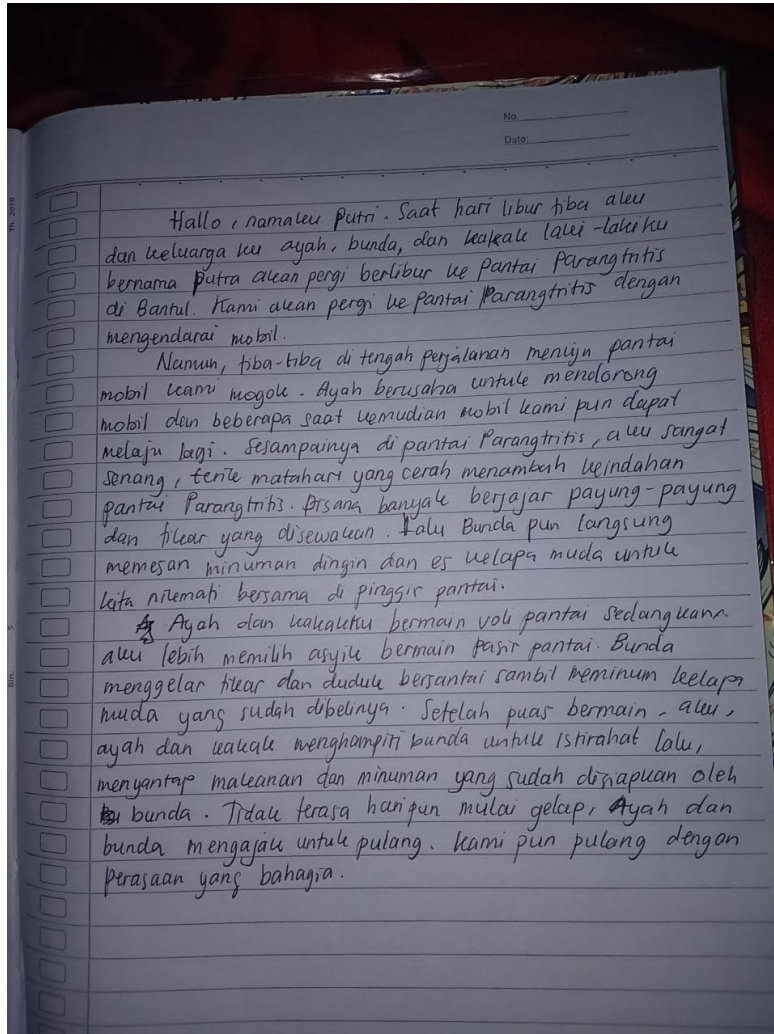 No.
Date:
Hallo, namaku Putri. Saat hari libur tiba aku
dan keluarga ku ayah, bunda, dan kakak laki-lakiku
bernama Putra akan pergi berlibur ke Pantai Parangtritis
di Bantul. Kami akan pergi ke Pantai Parangtritis dengan
mengendarai mobil.
Namun, tiba-tiba di tengah perjalanan menuju pantai
mobil kami mogok. Ayah berusaha untuk mendorong
mobil dan beberapa saat kemudian mobil kami pun dapat
melaju lagi. Sesampainya di pantai Parangtritis, aku sangat
senang, terik matahari yang cerah menambah keindahan
pantai Parangtritis. Disana banyak berjajar payung-payung
dan tikar yang disewakan. Lalu Bunda pun langsung
memesan minuman dingin dan es kelapa muda untuk
kita nikmati bersama di pinggir pantai.
Ayah dan kakakku bermain voli pantai sedangkann
aku lebih memilih asyik bermain pasir pantai. Bunda
menggelar tikar dan duduk bersantai sambil meminum kelapa
muda yang sudah dibelinya. Setelah puas bermain, aku,
ayah dan kakak menghampiri bunda untuk istirahat lalu,
menyantap makanan dan minuman yang sudah disiapkan oleh
bunda. Tidak terasa hari pun mulai gelap, Ayah dan
bunda mengajak untuk pulang. Kami pun pulang dengan
perasaan yang bahagia.